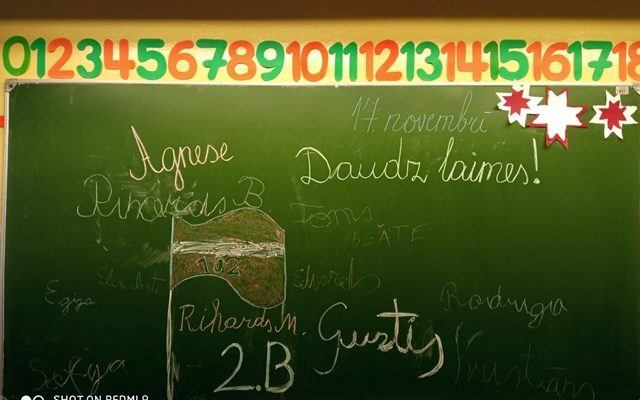 0 1 2 3 4 5 6 7 8 9 10 11 12 13 14 15 16 17 18
17. novembrī
Agnese
Daudz laimes!
Rihards B
Toms
BEĀTE
102
Elizabet
Edvards
Egija
Rihards M.
Gustis
2.B
Kristiāns
SHOT ON REDMI 8